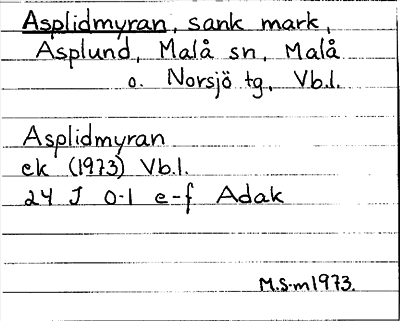 Asplidmyran, sank mark,
Asplund, Malå sn, Malå
o. Norsjö tg, Vb.l.
Asplidmyran
ek (1973) Vb.l.
24 J 0-1 e-f Adak
M.S-m 1973.